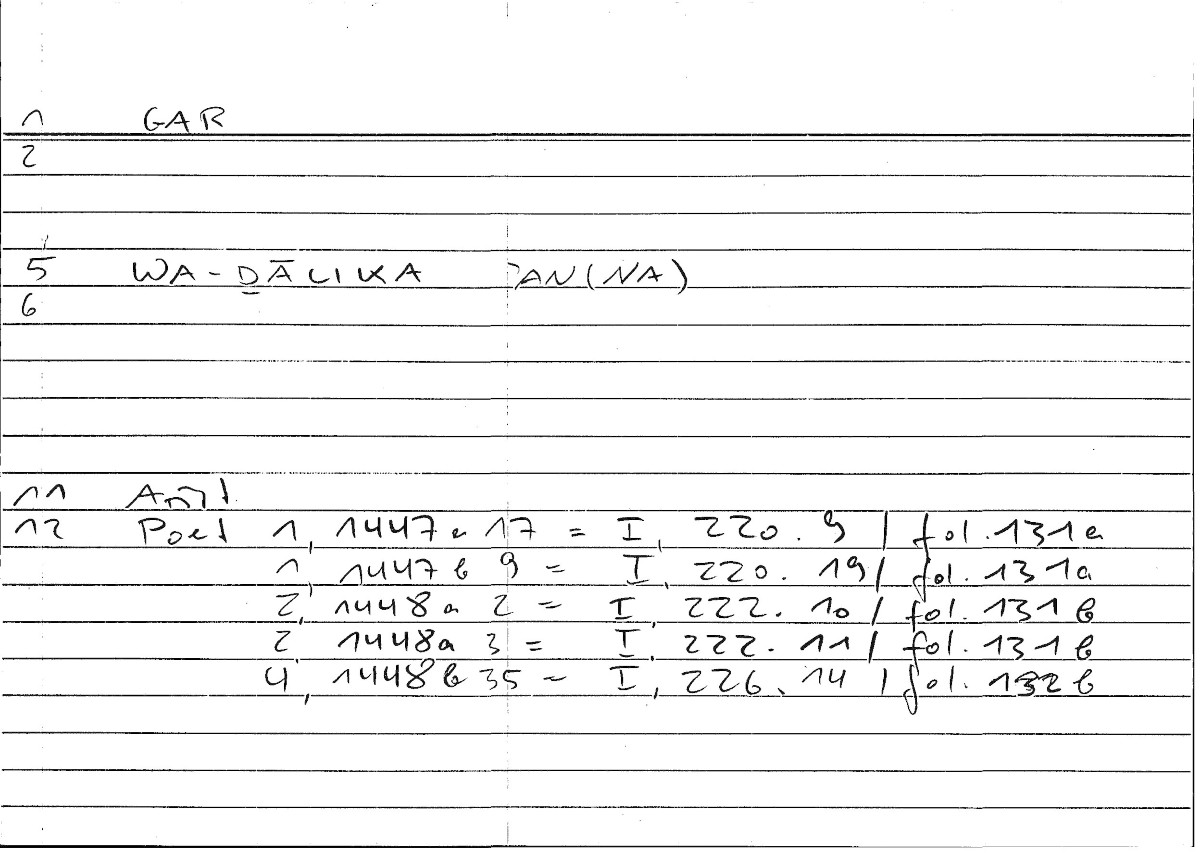 1 GAR
2
5 WA-ḎĀLIKA ʾAN(NA)
6
11 Arist.
12 Poet 1, 1447a 17 = I, 220. 9 / fol. 131a
1, 1447b 9 = I, 220. 19 / fol. 131a
2, 1448a 2 = I, 222. 10 / fol. 131b
2 1448a 3 = I, 222. 11 / fol. 131b
4, 1448b 35 = I, 226. 14 / fol. 132b